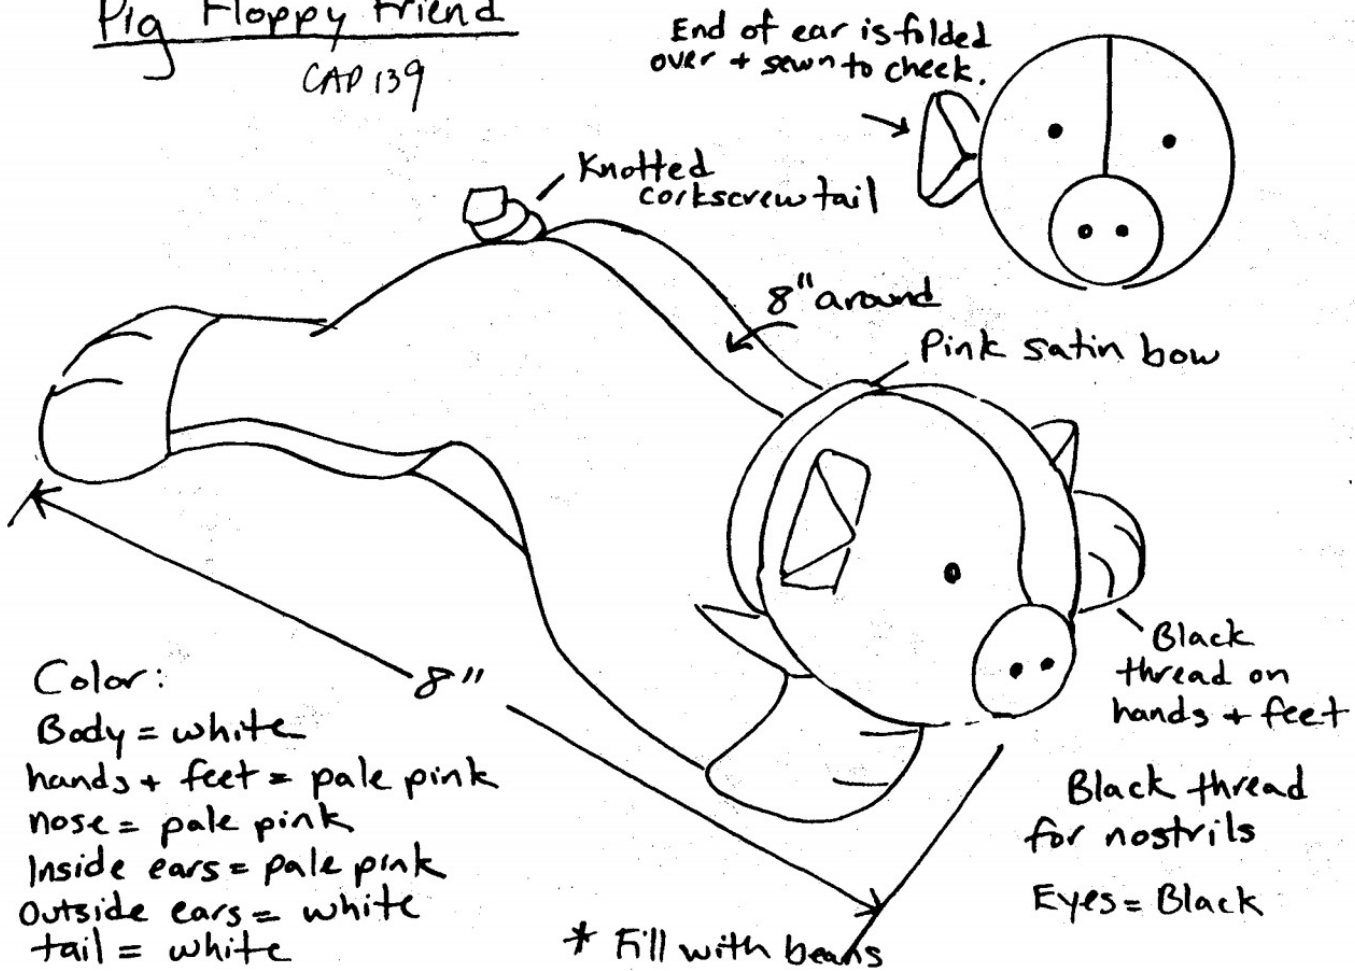 Pig Floppy Friend
CAP 139
End of ear is folded
over + sewn to cheek.
Knotted
corkscrew tail
8" around
Pink satin bow
8"
Black
thread on
hands + feet
Color:
Body = white
hands + feet = pale pink
nose = pale pink
Inside ears = pale pink
Outside ears = white
tail = white
Black thread
for nostrils
Eyes = Black
* Fill with beans